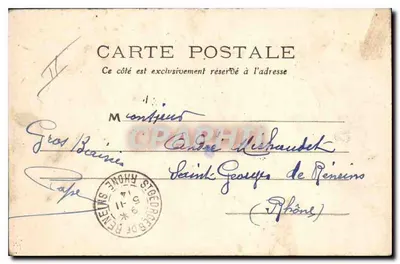 II
CARTE POSTALE
Ce côté est exclusivement réservé à l'adresse
Monsieur
André Michaudet
Saint-Georges de Reneins
(Rhône)
Gros Baisers
Pape
ST GEORGES DE RENEINS
RHONE